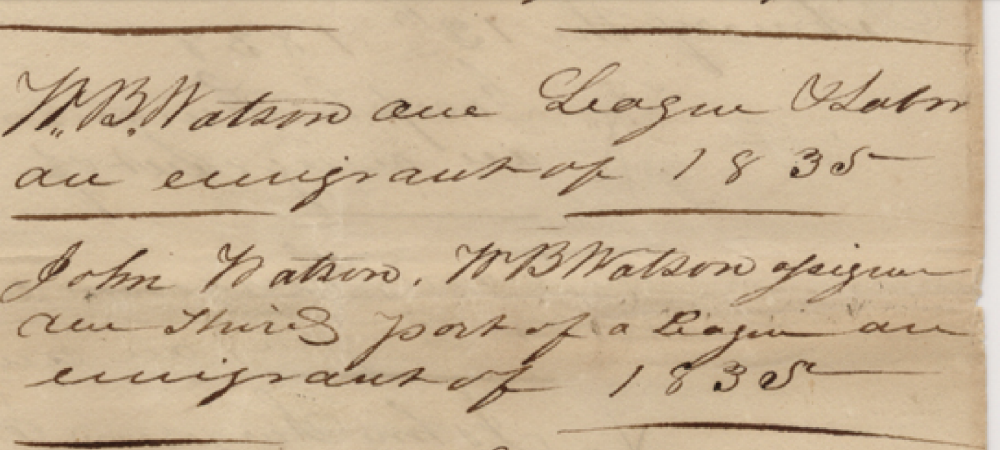 W. B. Watson one League & Labor
an emigrant of 1835
John Watson, W B Watson assignee
one Third part of a League an
emigrant of 1835